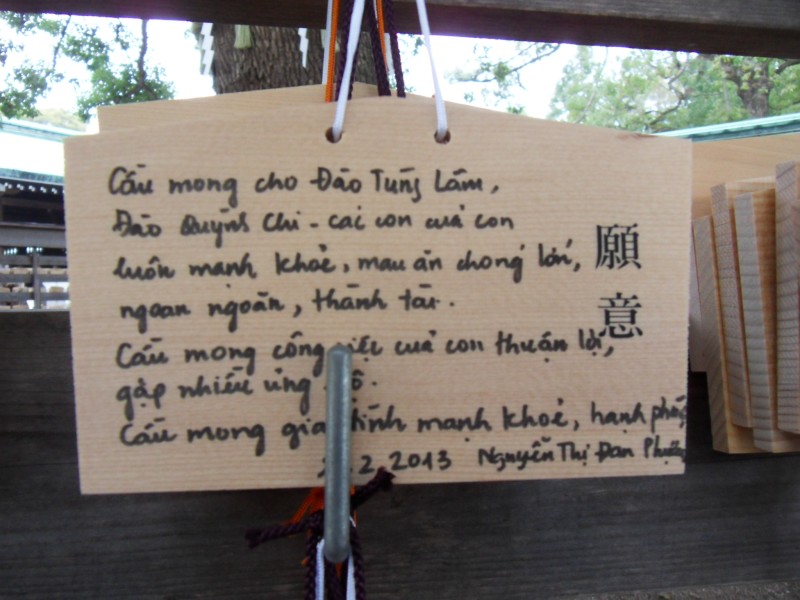 Cầu mong cho Đào Tùng Lâm,
Đào Quỳnh Chi - các con của con
luôn mạnh khoẻ, mau ăn chóng lớn,
ngoan ngoãn, thành tài.
Cầu mong công việc của con thuận lợi,
gặp nhiều ủng hộ.
Cầu mong gia đình mạnh khoẻ, hạnh phúc
.2.2013 Nguyễn Thị Đan Phượng
願意